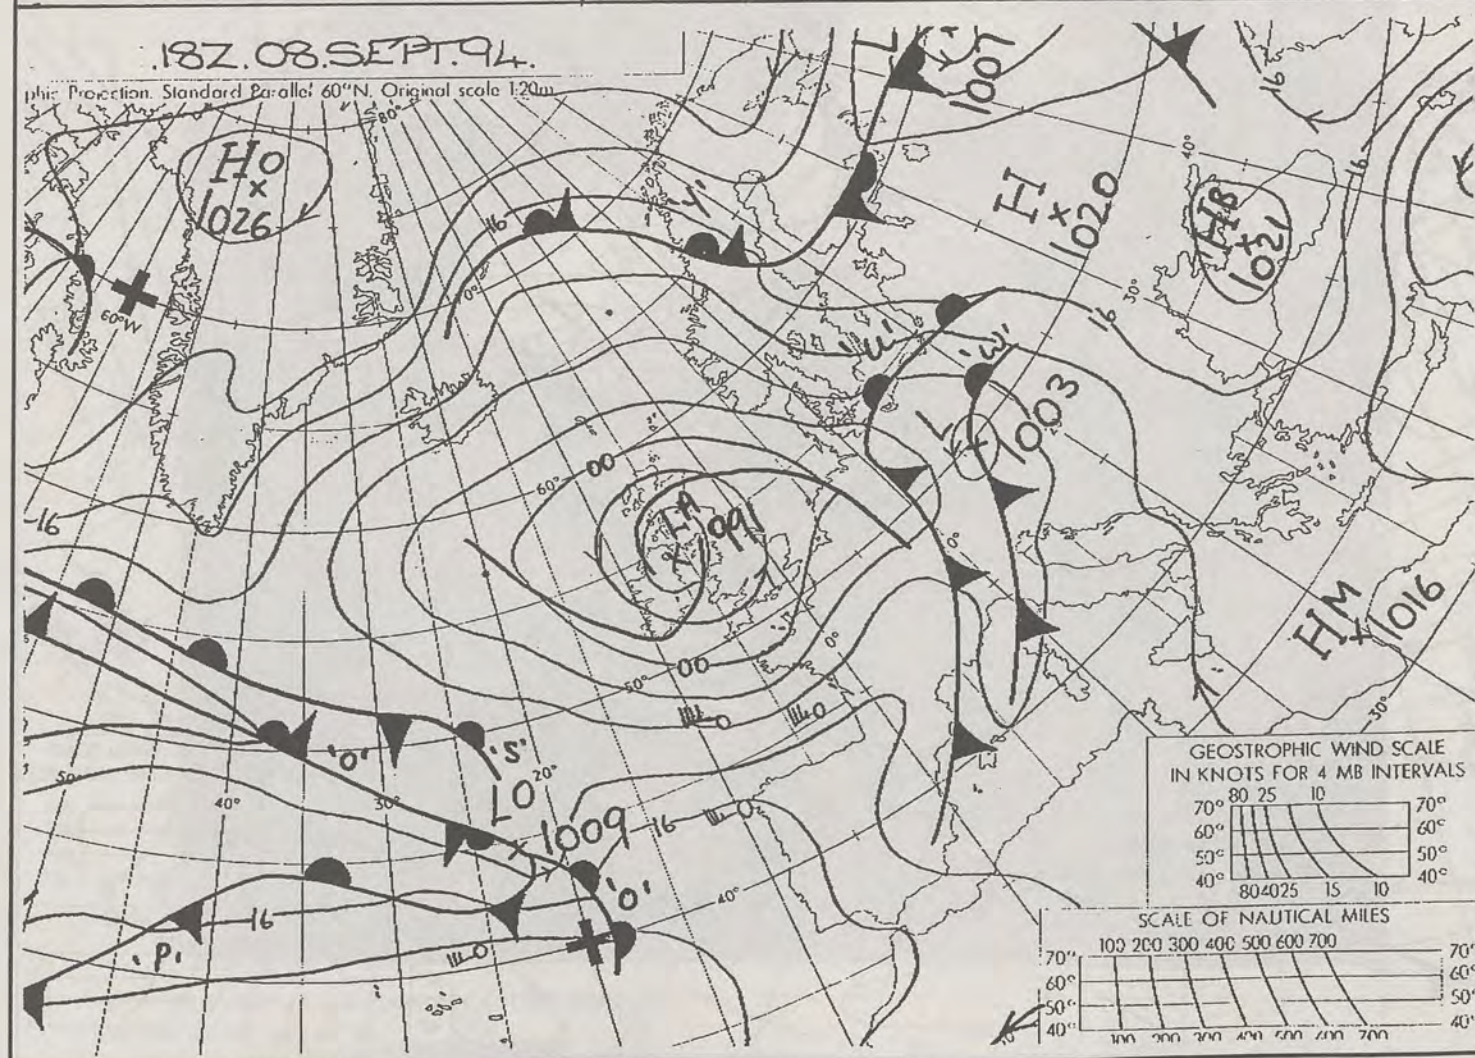 18Z.08.SEPT.94.
phic Projection. Standard Parallel 60°N. Original scale 1:20m
80°
HO
x
1026
60°W
L
1007
16
40°
H
x
1020
HB
x
1021
16
'Y'
16
0°
30°
16
'U'
'W'
L
x
1003
00
60°
LA
x
991
0°
16
HM
x
1016
30°
0°
00
50°
'S'
'O'
LO
20°
x 1009
50°
40°
30°
16
'O'
40°
16
'P'
GEOSTROPHIC WIND SCALE
IN KNOTS FOR 4 MB INTERVALS
80 25 10
70° 70°
60° 60°
50° 50°
40° 40°
80 40 25 15 10
SCALE OF NAUTICAL MILES
100 200 300 400 500 600 700
70° 70°
60° 60°
50° 50°
40° 40°
100 200 300 400 500 600 700